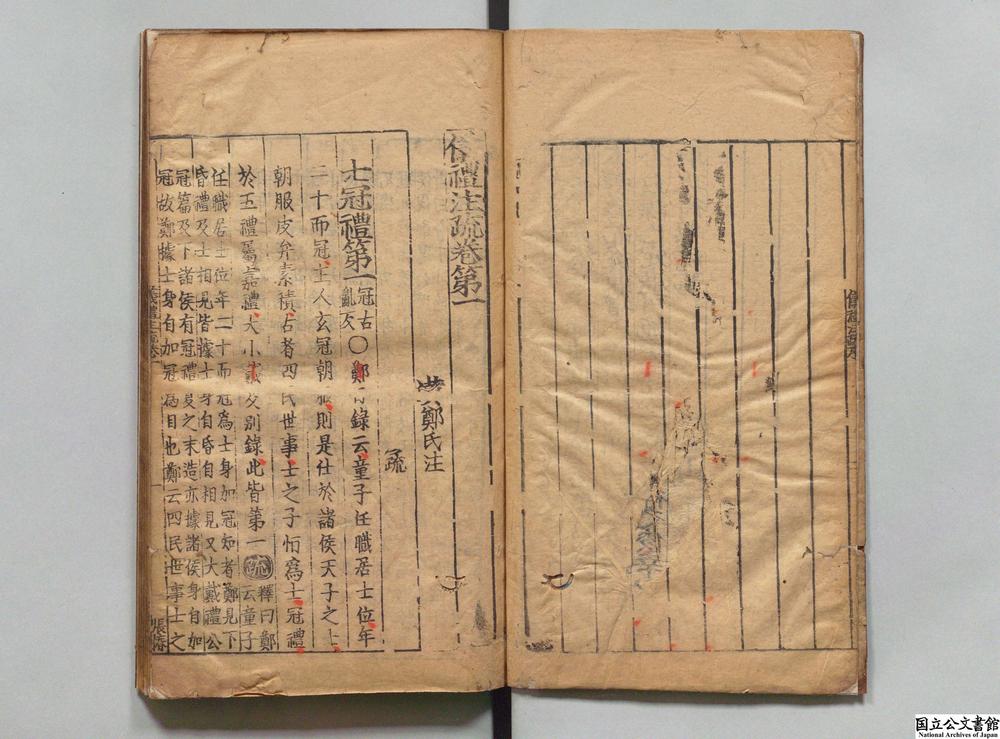 儀禮注疏卷第一
鄭氏注
疏
士冠禮第一冠古亂反〇鄭目錄云童子任職居士位年
二十而冠主人玄冠朝服則是仕於諸侯天子之士
朝服皮弁素積古者四民世事士之子恒爲士冠禮
於五禮屬嘉禮大小戴及別錄此皆第一疏釋曰鄭云童子
任職居士位年二十而冠爲士身加冠知者鄭見下
昏禮及士相見皆據士身自昏自相見又大戴禮公
冠篇及下諸侯有冠禮夏之末造亦據諸侯身自加
冠故鄭據士身自加冠爲目也鄭云四民世事士之
張椿
国立公文書館
National Archives of Japan